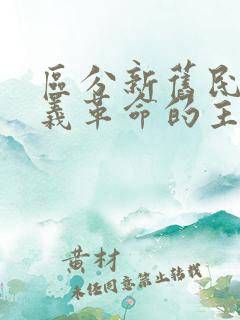 區分新舊民
義革命的主
黄材
未经同意禁止转载